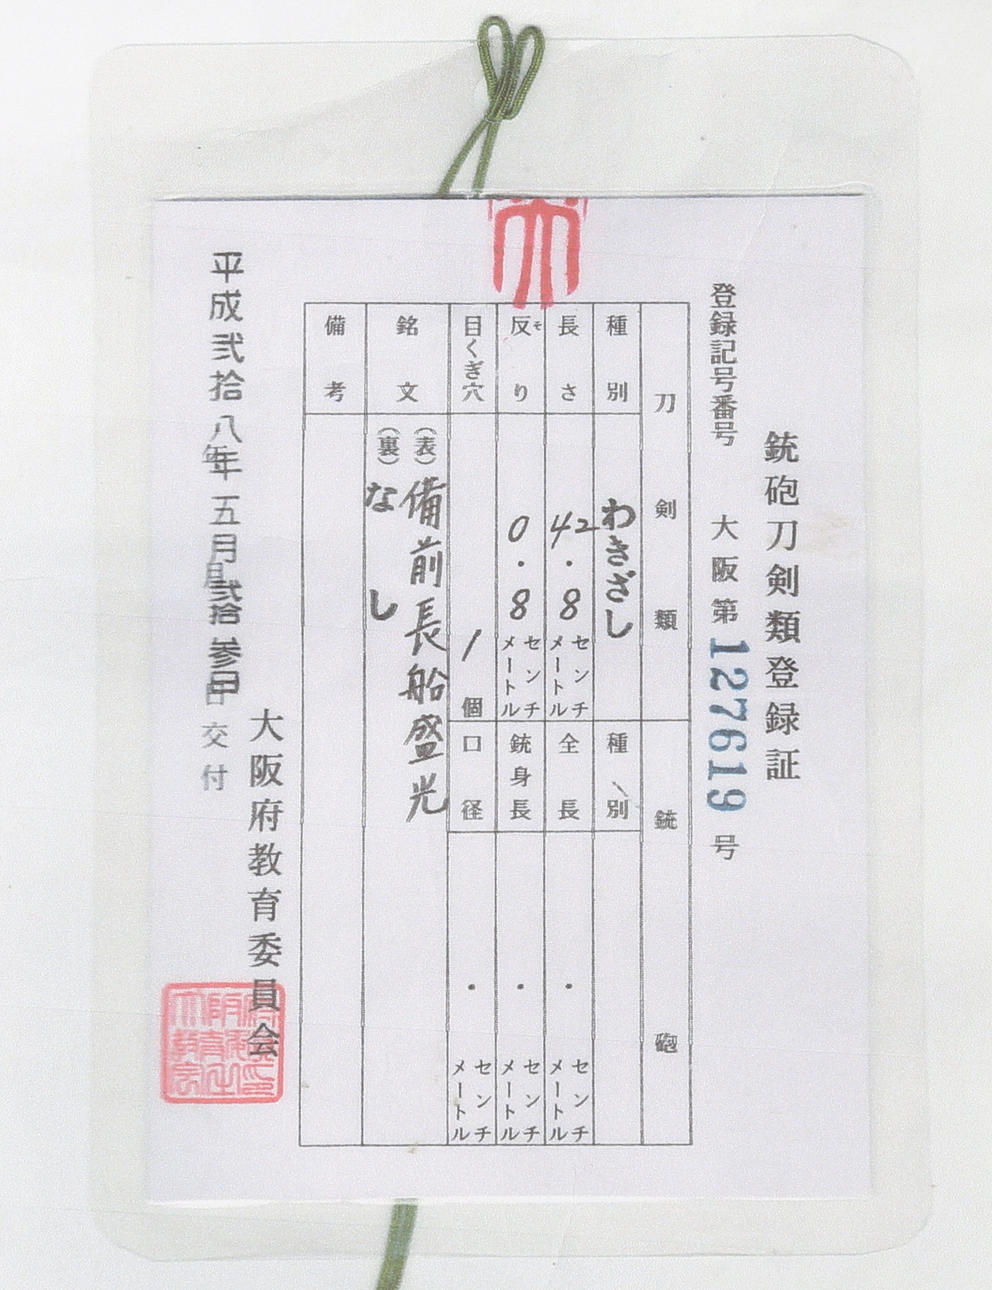 銃砲刀剣類登録証
登録記号番号 大阪第127619号
刀剣類
銃砲
種別 わきざし
種別
長さ 42.8センチメートル
全長 ・ センチメートル
反り そ 0.8センチメートル
銃身長 ・ センチメートル
目くぎ穴 1個
口径 ・ センチメートル
銘文 (表)備前長船盛光
(裏)なし
備考
大阪府教育委員会
平成弐拾八年五月弐拾参日交付